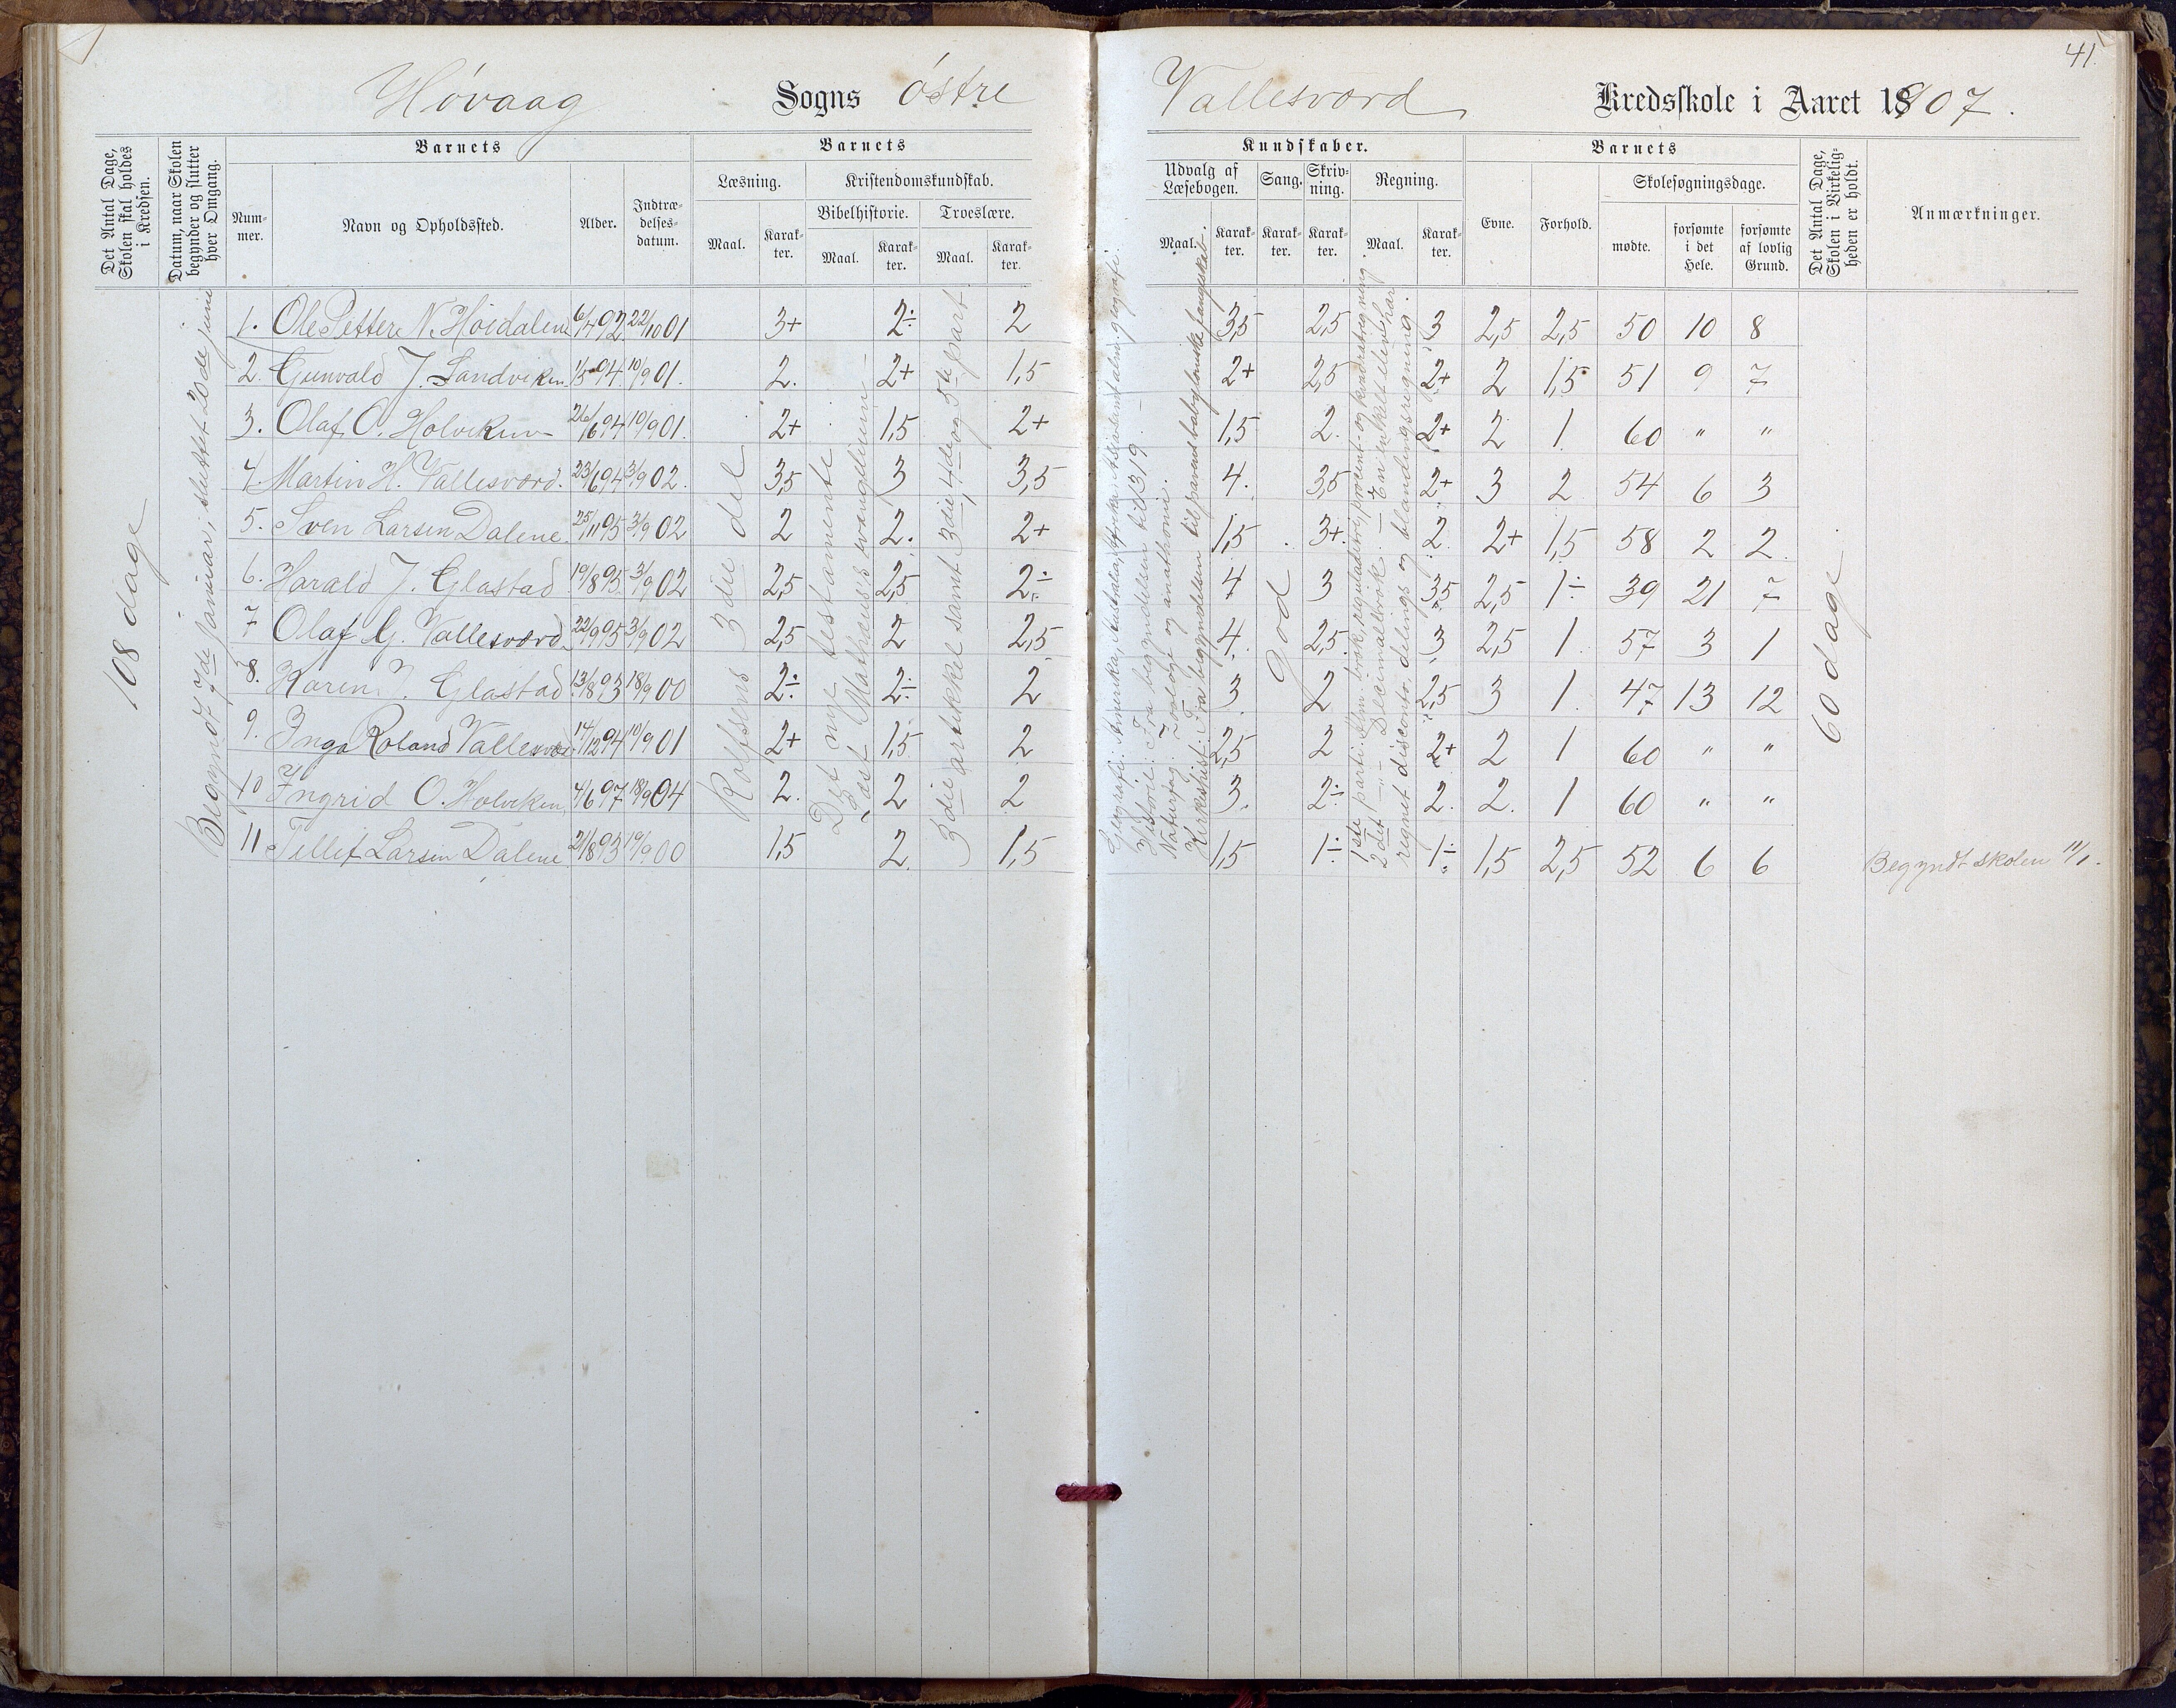 41.
Høvaag Sogns østre Vallesværd Kredsskole i Aaret 1907.
Det Antal Dage, Skolen skal holdes i Kredsen.
Datum, naar Skolen begynder og slutter hver Omgang.
Barnets
Nummer.
Navn og Opholdssted.
Alder.
Indtrædelsesdatum.
Barnets
Læsning.
Maal.
Karakter.
Kristendomskundskab.
Bibelhistorie.
Maal.
Karakter.
Troeslære.
Maal.
Karakter.
Kundskaber.
Udvalg af Læsebogen.
Maal.
Karakter.
Sang.
Karakter.
Skrivning.
Karakter.
Regning.
Maal.
Karakter.
Barnets
Evne.
Forhold.
Skolesøgningsdage.
mødte.
forsømte i det Hele.
forsømte af lovlig Grund.
Det Antal Dage, Skolen i Virkeligheden er holdt.
Anmærkninger.
108 dage
Begyndt 7de januar, sluttet 20de juni
Rolfsens 3die del
Det nye testamente
Læst Mathæus's evangelium
3die artikkel samt 3die, 4de og 5te part
Geografi: Amerika, Australia, Afrika, Asia samt alm. geografi.
Historie: Fra begyndelsen til 1319.
Naturfag. Zoologi og anathomi.
Kirkehist: Fra begyndelsen til pavens babyloniske fangeskab.
god
1ste parti: Alm. brøk, reguladetri, procent- og kvadratregning.
2det —"— Decimalbrøk. — En enkelt elev har
regnet disconto, delings og blandingsregning.
60 dage.
1. Ole Petter N. Høidalen 6/4 92 22/10 01 3+ 2÷ 2 3,5 2,5 3 2,5 2,5 50 10 8
2. Gunvald J. Sandviken 1/5 94 10/9 01. 2. 2+ 1,5 2+ 2,5 2+ 2 1,5 51 9 7
3. Olaf O. Holviken 26/6 94 10/9 01. 2+ 1,5 2+ 1,5 2. 2+ 2 1 60 " "
4. Martin H. Vallesværd. 23/6 94 3/9 02. 3,5 3 3,5 4. 3,5 2+ 3 2 54 6 3
5. Sven Larsen Dalene. 25/11 95 3/9 02 2 2. 2+ 1,5 3+. 2. 2+ 1,5 58 2 2.
6. Harald J. Glastad 19/8 95 3/9 02 2,5 2,5 2÷ 4 3 3,5 2,5 1÷ 39 21 7
7 Olaf G. Vallesværd 22/9 95 3/9 02 2,5 2 2,5 4. 2,5. 3 2,5 1. 57 3 1
8. Karen J. Glastad 13/8 93 18/9 00 2÷ 2÷ 2 3 2 2,5 3 1. 47 13 12
9. Inga Roland Vallesvær 14/12 94 10/9 01 2+ 1,5 2 2,5 2 2+ 2 1 60 " "
10 Ingrid O. Holviken 4/6 97 18/9 04 2. 2 2 3. 2÷ 2. 2. 1 60 " "
11 Tellef Larsen Dalene 21/8 93 19/9 00 1,5 2. 1,5 1,5 1÷ 1÷ 1,5 2,5 52 6 6 Begyndt skolen 11/1.